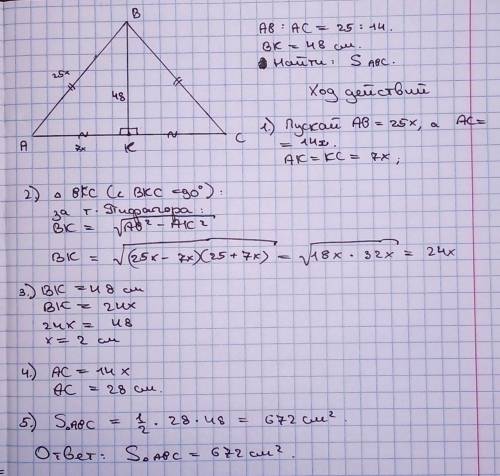 B
25x
48
A
7x
K
C
AB : AC = 25 : 14.
BK = 48 см.
Найти: S ABC.
Ход действий
1.) Пускай AB = 25x, а AC =
= 14x.
AK = KC = 7x;
2) △ BKC (∠ BKC = 90°):
за т. Пифагора:
BK = √AB² - AK²
BK = √(25x - 7x)(25 + 7x) = √18x · 32x = 24x
3.) BK = 48 см
BK = 24x
24x = 48
x = 2 см
4.) AC = 14x
AC = 28 см.
5.) S△ABC = 1/2 · 28 · 48 = 672 см².
Ответ: S△ABC = 672 см².